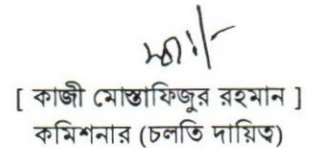 [ কাজী মোস্তাফিজুর রহমান ]
কমিশনার (চলতি দায়িত্ব)